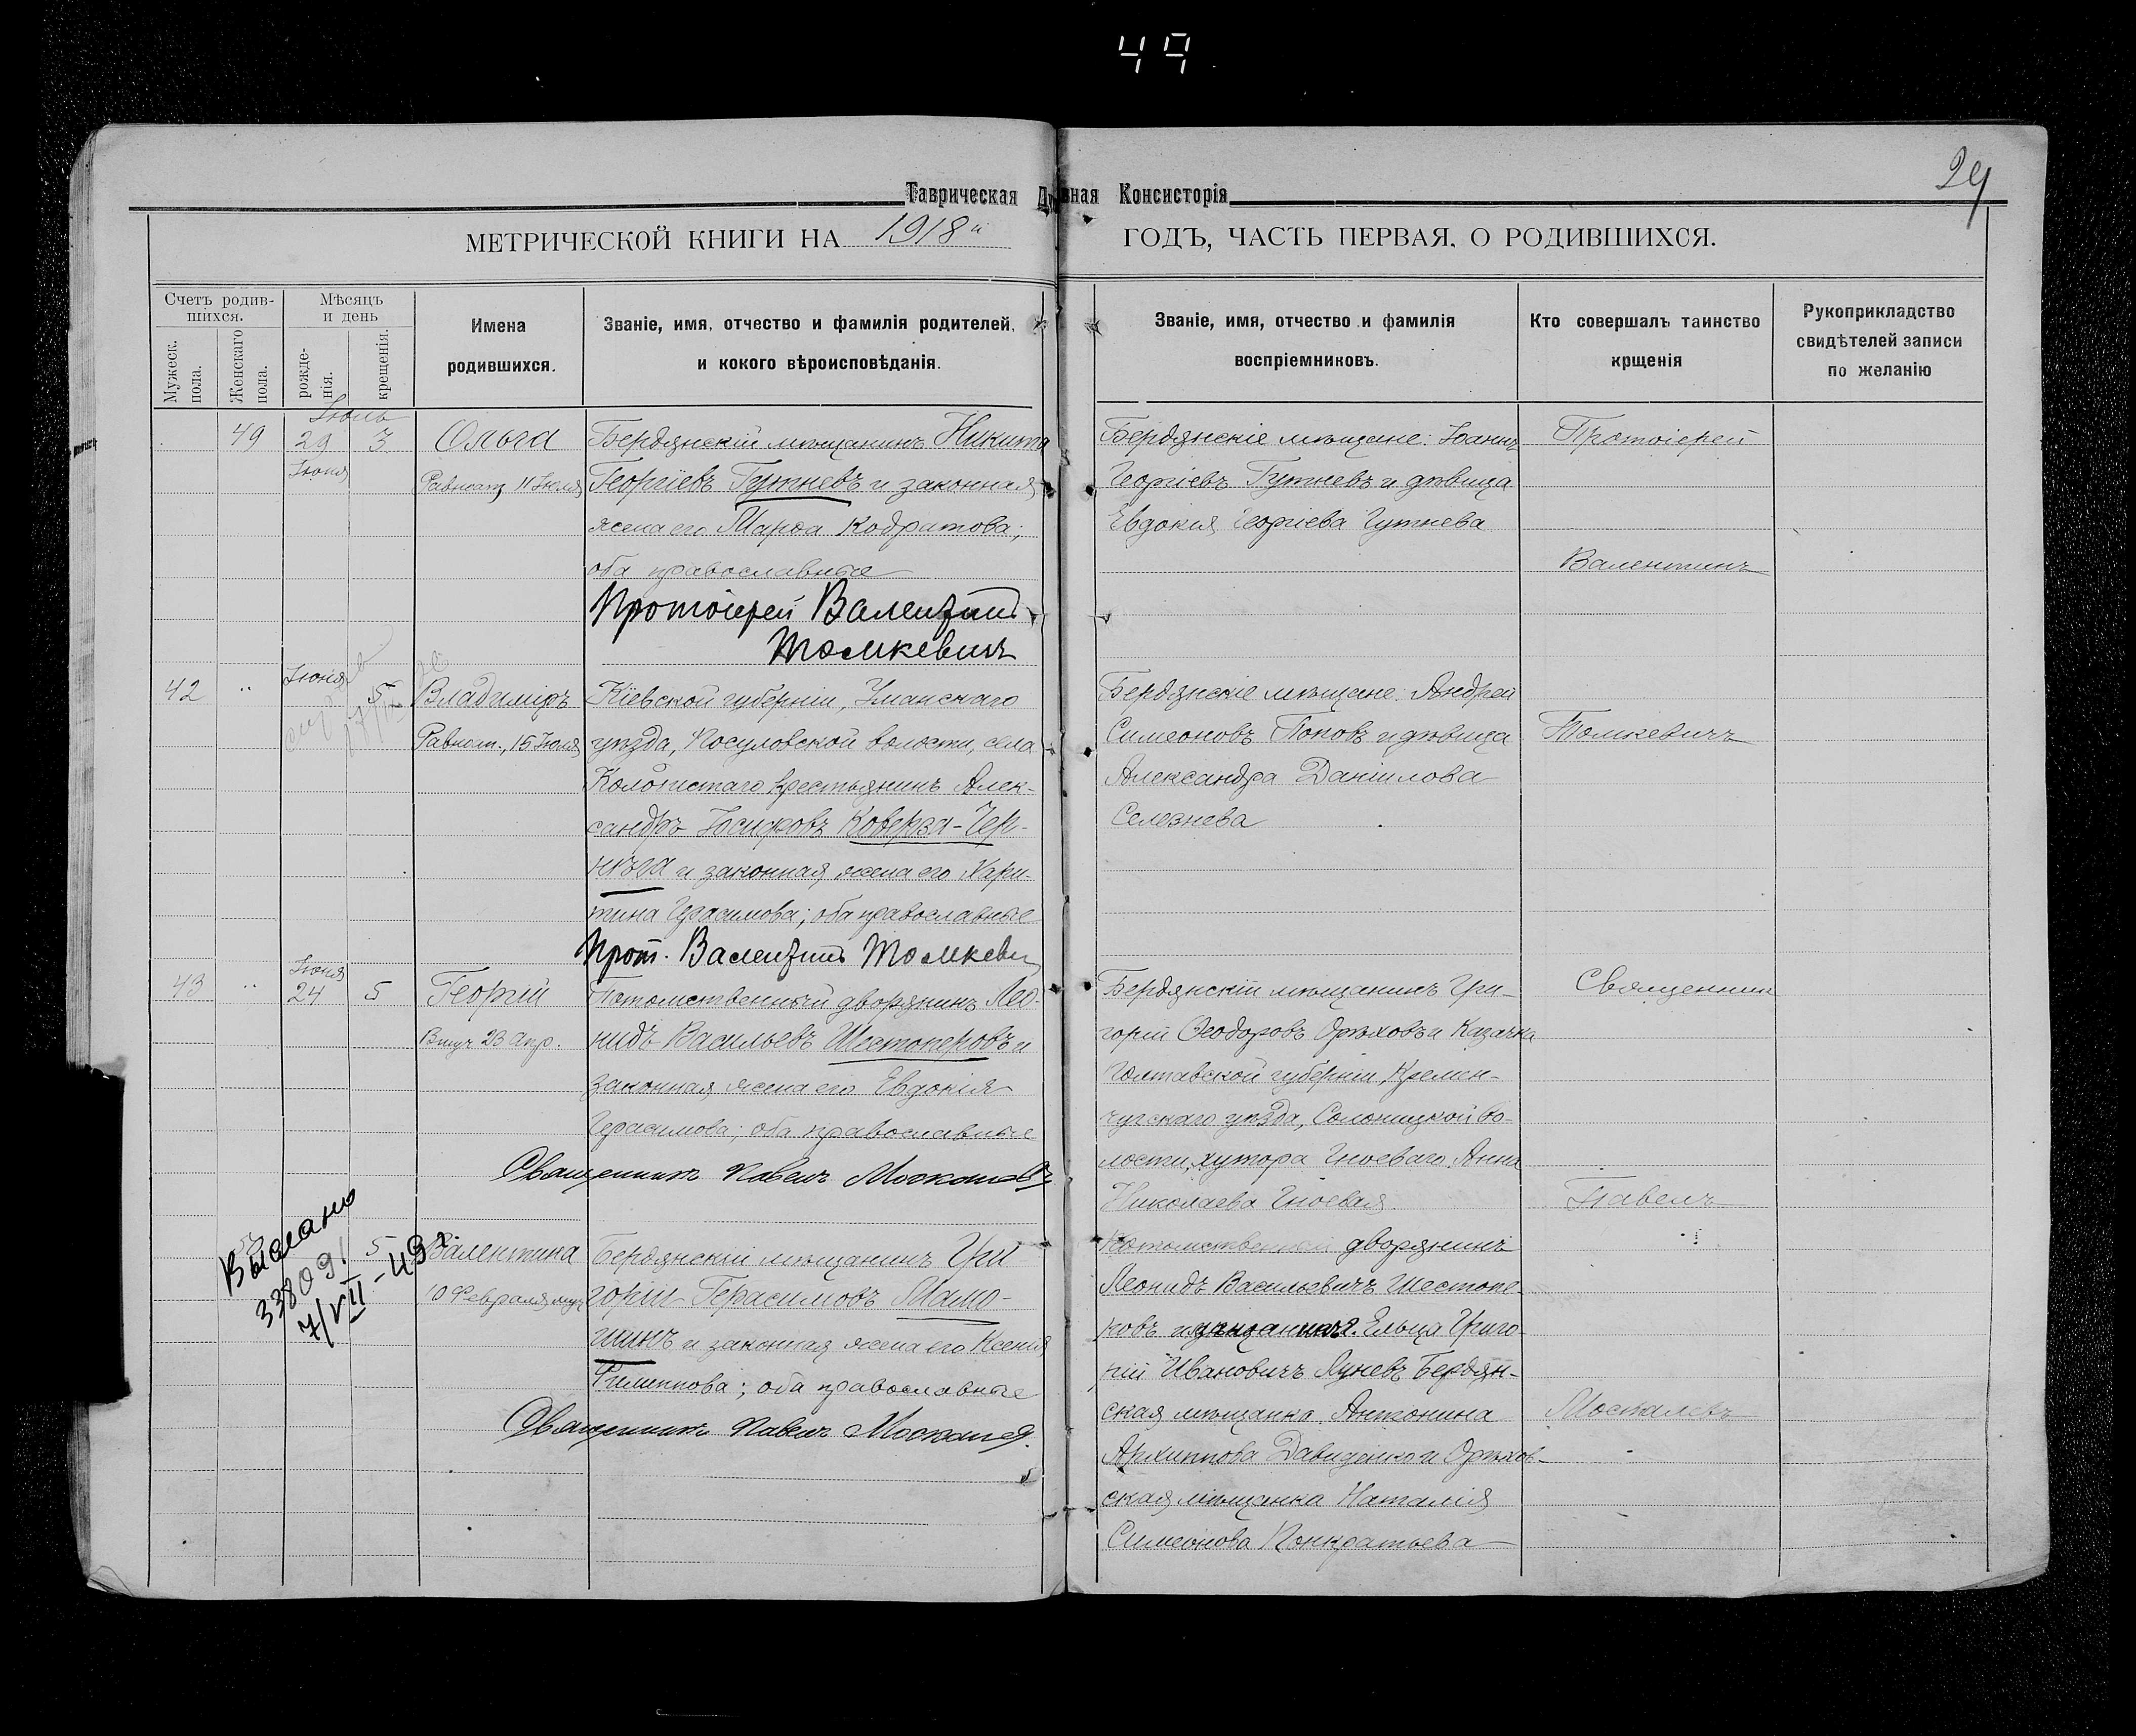 49
29
Таврическая Духовная Консисторія
МЕТРИЧЕСКОЙ КНИГИ НА 1918й ГОДЪ, ЧАСТЬ ПЕРВАЯ, О РОДИВШИХСЯ.
Счетъ родившихся.
Мужеск. пола.
Женскаго пола.
Мѣсяцъ и день
рожденія.
крещенія.
Имена родившихся.
Званіе, имя, отчество и фамилія родителей, и кокого вѣроисповѣданія.
Званіе, имя, отчество и фамилія воспріемниковъ.
Кто совершалъ таинство крщенія
Рукоприкладство свидѣтелей записи по желанію
Іюль
49 29 3 Ольга
Іюня
Равноап 11 Іюля
Бердянскій мѣщанинъ Никита
Георгіевъ Гутневъ и законная
жена его Марѳа Кодратова;
оба православные
Протоіерей Валентинъ
Томкевичъ
Бердянскіе мѣщане: Іоаннъ
Георгіевъ Гутневъ и дѣвица
Евдокія Георгіева Гутнева
Протоіерей
Валентинъ
Томкевичъ
42 " Іюня 5 Владиміръ
Равноап., 15 Іюля
Кіевской губерніи, Уманскаго
уѣзда, Посуловской волости, села
Колодистаго крестьянинъ Алек-
сандръ Іосифовъ Коверза-Чер-
нѣга и законная жена его Хари-
тина Герасимова; оба православные
Прот. Валентинъ Томкевич
Бердянскіе мѣщане: Андрей
Симеоновъ Поповъ и дѣвица
Александра Даніилова
Селезнева
43 " Іюня 24 5 Георгій
Вмуч 23 Апр.
Потомственный дворянинъ Лео-
нидъ Васильевъ Шестоперовъ и
законная жена его Евдокія
Герасимова; оба православные
Священникъ Павелъ Москалевъ
Бердянскій мѣщанинъ Гри-
горій Ѳеодоровъ Орѣховъ и Казачка
Полтавской губерніи, Кремен-
чугскаго уѣзда, Солоницкой во-
лости, хутора Гноеваго Анна
Николаева Гноевая
Священник
Павелъ
Москалевъ
5 Валентина
10 Февраля муч
Выслано
33809!
7/VII-43 г.
Бердянскій мѣщанинъ Гри-
горій Герасимовъ Мамо-
шинъ и законная жена его Ксенія
Филиппова; оба православные
Священникъ Павелъ Москалев.
Потомственный дворянинъ
Леонидъ Васильевичъ Шестопе-
ровъ и Ельца Григо-
рій Ивановичъ Луневъ Бердян-
ская мѣщанка Антонина
Архиппова Давиденко и Орѣхов-
ская мѣщанка Наталія
Симеонова Понкратьева